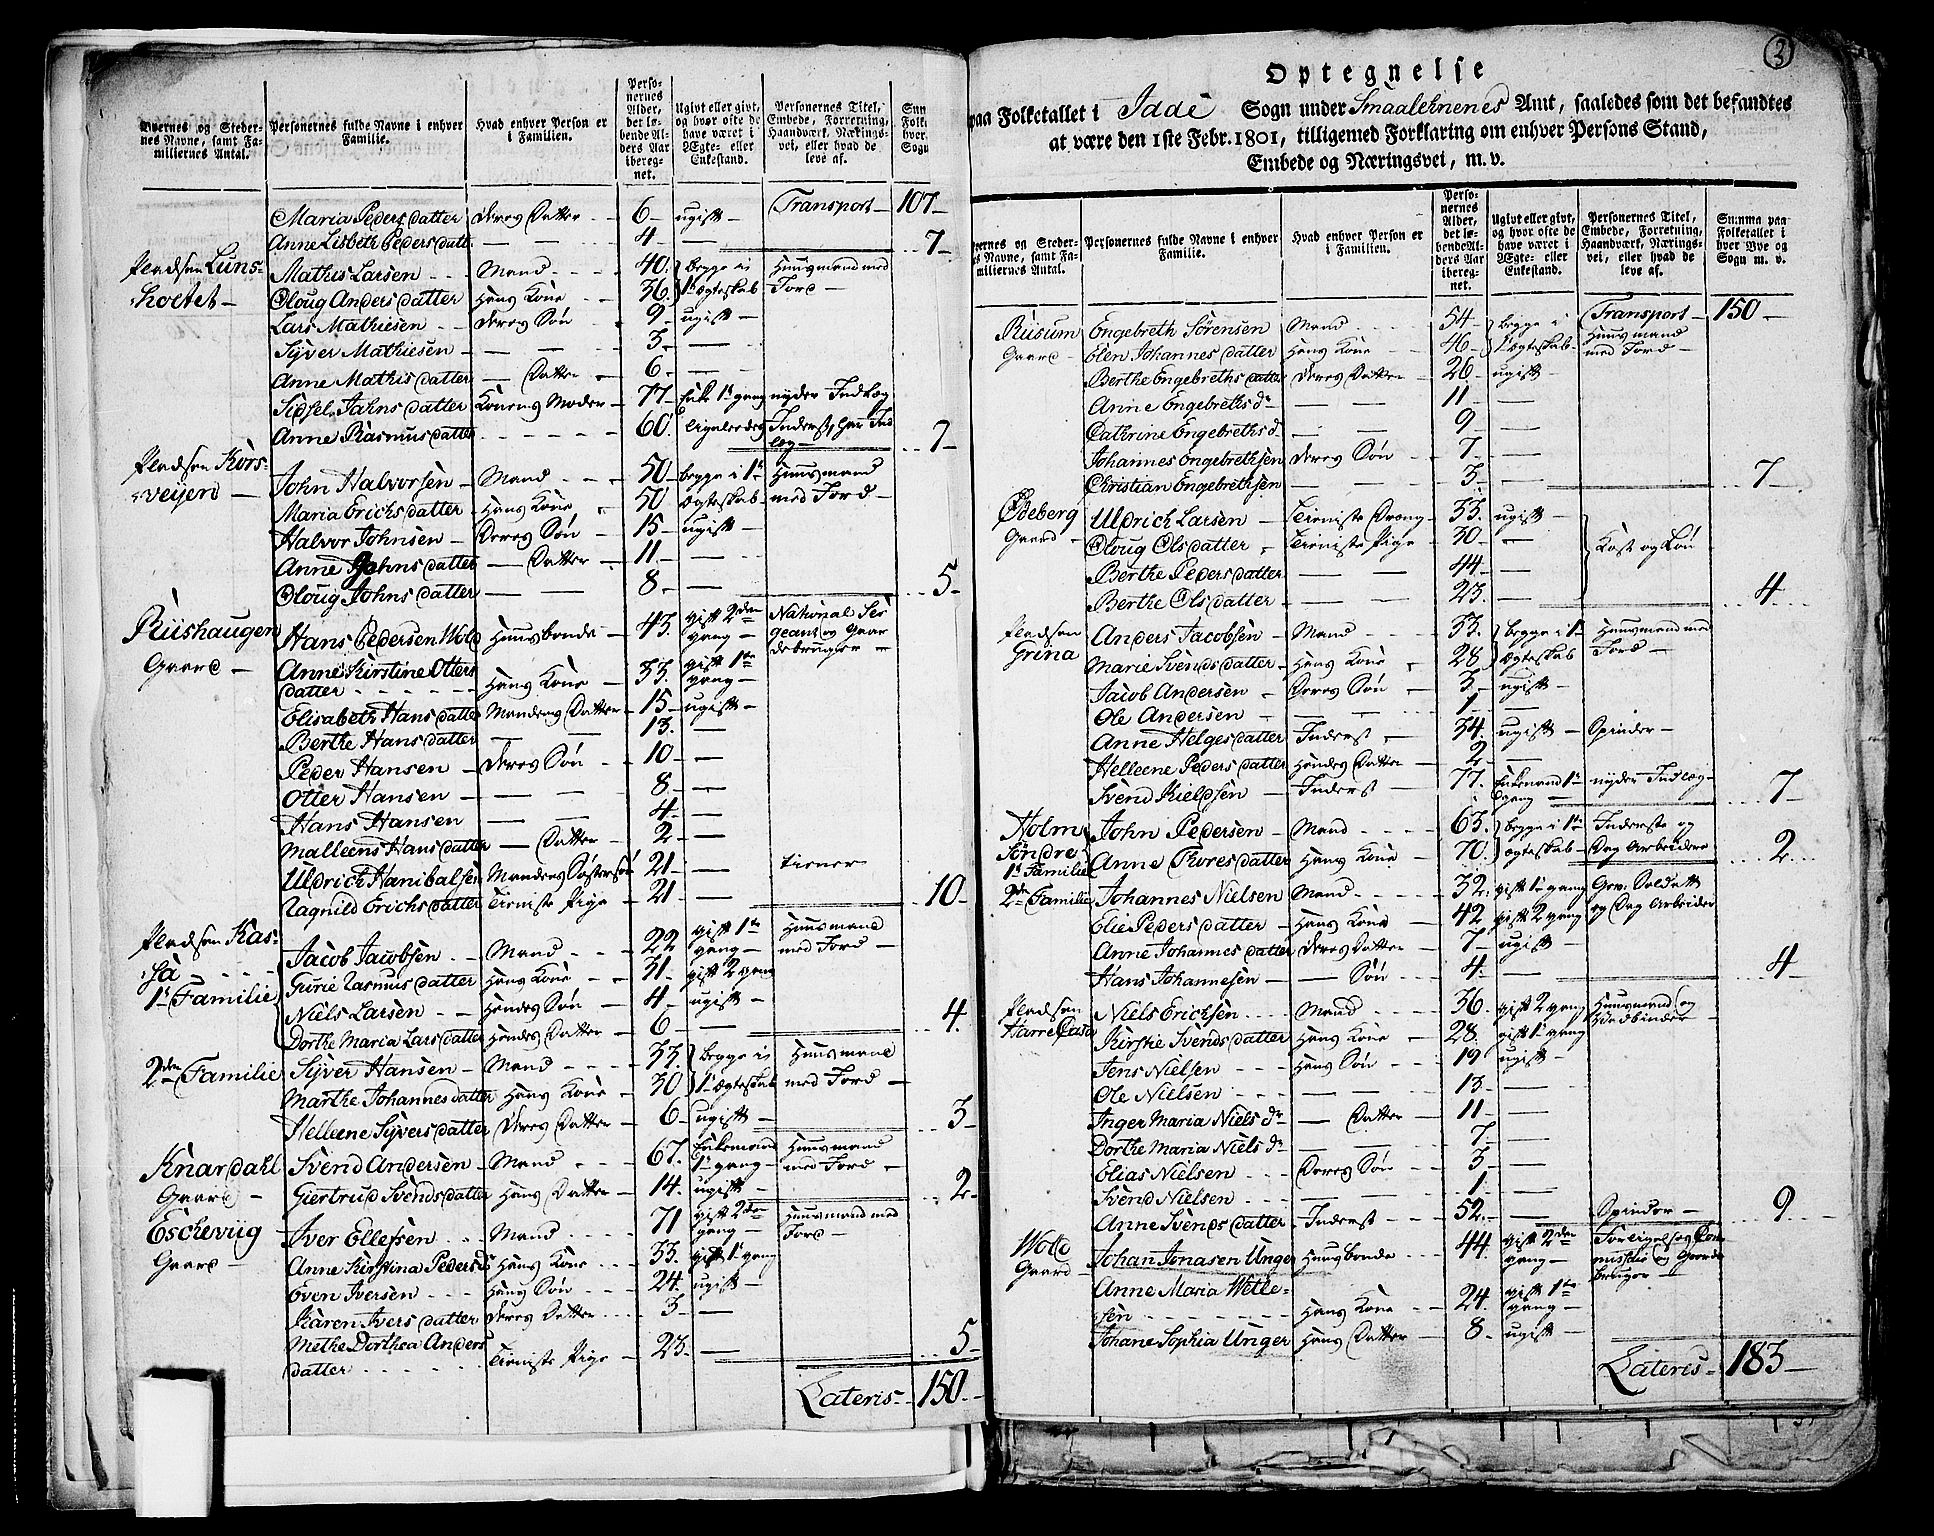 Byernes og Stedernes Navne, samt Familiernes Antal. | Personernes fulde Navne i enhver Familie. | Hvad enhver Person er i Familien. | Personernes Alder, det løbende Alders Aar iberegnet. | Ugivt eller givt, og hvor ofte de have været i Ægte- eller Enkestand. | Personernes Titel, Embede, Forretning, Haandværk, Næringsvei, eller hvad de leve af.
Transport 107
Maria Peders datter deres Datter 6 ugift
Anne Lisbeth Peders datt. — — 4 — 7
Pladsen Lunskoetet Mathis Larsen Mand 40 begge i Huusmand med
Oloug Anders datter Hans Kone 36 1te Ægteskab Jord
Lars Mathiesen deres Søn 9 ugift
Syver Mathiesen — — 3 —
Anne Mathis datter — Datter 6 —
Sidsel Jahns datter Konens Moder 77 Enke 1te gang nyder Indlæg
Anne Rasmus datter 60 ligeledes Inderst, har Indlæg 7
Pladsen Korsveijen John Halvorsen Mand 50 begge i 1te Huusmand
Maria Erichs datter Hans Kone 50 Ægteskab med Jord
Halvor Johnsen Deres Søn 15 ugift
Anne Johns datter — Datter 11 —
Oloug Johns datter — — 8 — 5
Riishaugen Gaard Hans Pedersen Wold Huusbonde 43 gift 2den gang National Sergeant og Gaardebruger
Anne Kirstine Otters datter Hans Kone 33 gift 1te gang
Elisabeth Hans datter Mandens Datter 15 ugift
Berthe Hans datter — — 13 —
Peder Hansen deres Søn 10 —
Otter Hansen — — 8 —
Hans Hansen — — 4 —
Malleens Hans datter — Datter 2 —
Uldrich Hanibalsen Mandens Søstersøn 21 — tiener
Ragnild Erichs datter Tieniste Pige 21 — 10
Pladsen Kassa
1te Familie Jacob Jacobsen Mand 22 gift 1te gang Huusmand med Jord
Gurie Rasmus datter Hans Kone 31 gift 2 gang
Niels Larsen Hendes Søn 4 ugift
Dorthe Maria Lars datter Hendes Datter 6 — 4
2den Familie Syver Hansen Mand 33 begge i Huusmand
Marthe Johannes datter Hans Kone 30 1te Ægteskab med Jord
Helleene Syvers datter deres Datter 6 ugift 3
Knardahl Gaard Svend Andersen Mand 67 Enkemand 1te gang Huusmand med Jord
Giertrud Svends datter Hans Datter 14 ugift 2
Escheviig Gaard Iver Ellefsen Mand 71 gift 2den gang Huusmand med Jord
Anne Kirstina Peders d. Hans Kone 33 gift 1te gang
Even Iversen Hans Søn 24 ugift
Karen Ivers datter deres Datter 3 —
Methe Dorthea Anders datter Tieniste Pige 23 — 5
Lateris 150
3
Optegnelse
paa Folketallet i Idde Sogn under Smaalehnenes Amt, saaledes som det befandtes
at være den 1ste Febr. 1801, tilligemed Forklaring om enhver Persons Stand,
Embede og Næringsvei, m. v.
Personernes fulde Navne i enhver Familie. | Hvad enhver Person er i Familien. | Personernes Alder, det løbende Alders Aar iberegnet. | Ugivt eller givt, og hvor ofte de have været i Ægte- eller Enkestand. | Personernes Titel, Embede, Forretning, Haandværk, Næringsvei, eller hvad de leve af. | Summa paa Folketallet i hver Bye og Sogn m. v.
Transport 150
Riisum Gaard Engebreth Sørensen Mand 54 begge i Huusmand
Elen Johannes datter Hans Kone 46 1te Ægteskab med Jord
Berthe Engebreths datter deres Datter 26 ugift
Anne Engebreths dr — — 11 —
Cathrine Engebreths d. — — 9 —
Johannes Engebrethsen deres Søn 7 —
Christian Engebrethsen — — 3 — 7
Ødeberg Gaard Uldrich Larsen Tieniste Dreng 33 ugift Kost og Løn
Oloug Ols datter Tieniste Pige 30 —
Berthe Peders datter — — 44 —
Berthe Ols datter — — 23 — 4
Pladsen Grina Anders Jacobsen Mand 33 begge i 1te Huusmand med
Marie Svends datter Hans Kone 28 Ægteskab Jord
Jacob Andersen Deres Søn 3 ugift
Ole Andersen — — 1 —
Anne Helges datter Inderst 34 ugift Spinder
Helleene Peders datter Hendes Datter 2 —
Svend Kieldsen Inderst 77 Enkemand 1te gang nyder Indlæg 7
Holm Søndre
1te Familie John Pedersen Mand 63 begge i 1te Inderste og
Anne Thores datter Hans Kone 70 Ægteskab Dag Arbeidere 2
2den Familie Johannes Nielsen Mand 32 gift 1te gang Gev. Soldatt og Dag Arbeider
Elie Peders datter Hans Kone 42 gift 2 gang
Anne Johannes datter deres Datter 7 ugift
Hans Johannesen — Søn 4 — 4
Pladsen Harre Casa Niels Ericksen Mand 36 gift 2 gang Huusmand og
Kirstie Svends datter Hans Kone 28 gift 1te gang
Jens Nielsen Hans Søn 19 ugift
Ole Nielsen — — 13 —
Inger Maria Niels dr — Datter 11 —
Dorthe Maria Niels dr — — 7 —
Elias Nielsen Deres Søn 3 —
Svend Nielsen — — 1 —
Anne Svends datter Inderst 52 — Spinder 9
Wold Gaard Johan Jonasen Unger Huusbonde 44 gift 2den gang Forligelses Commissair og Gaardebruger
Anne Maria Wettesen Hans Kone 24 gift 1te gang
Johane Sophia Unger Hans Datter 8 ugift
Lateris 183